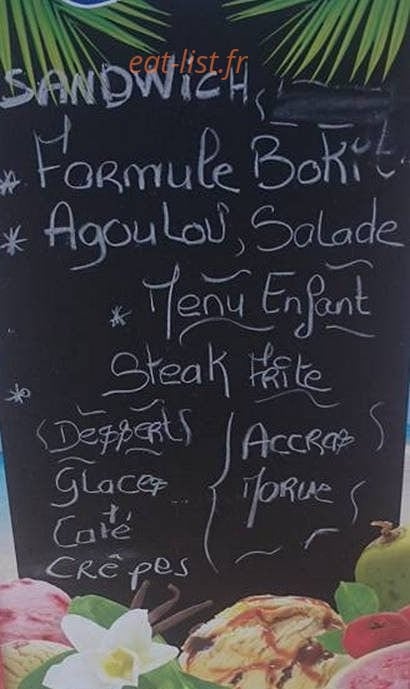 eat-list.fr
SANDWICH
* Formule Bokit
* Agoulou, Salade
* Menu Enfant
* Steak Frite
Desserts
Glaces
Café
Crêpes
Accras
Morue